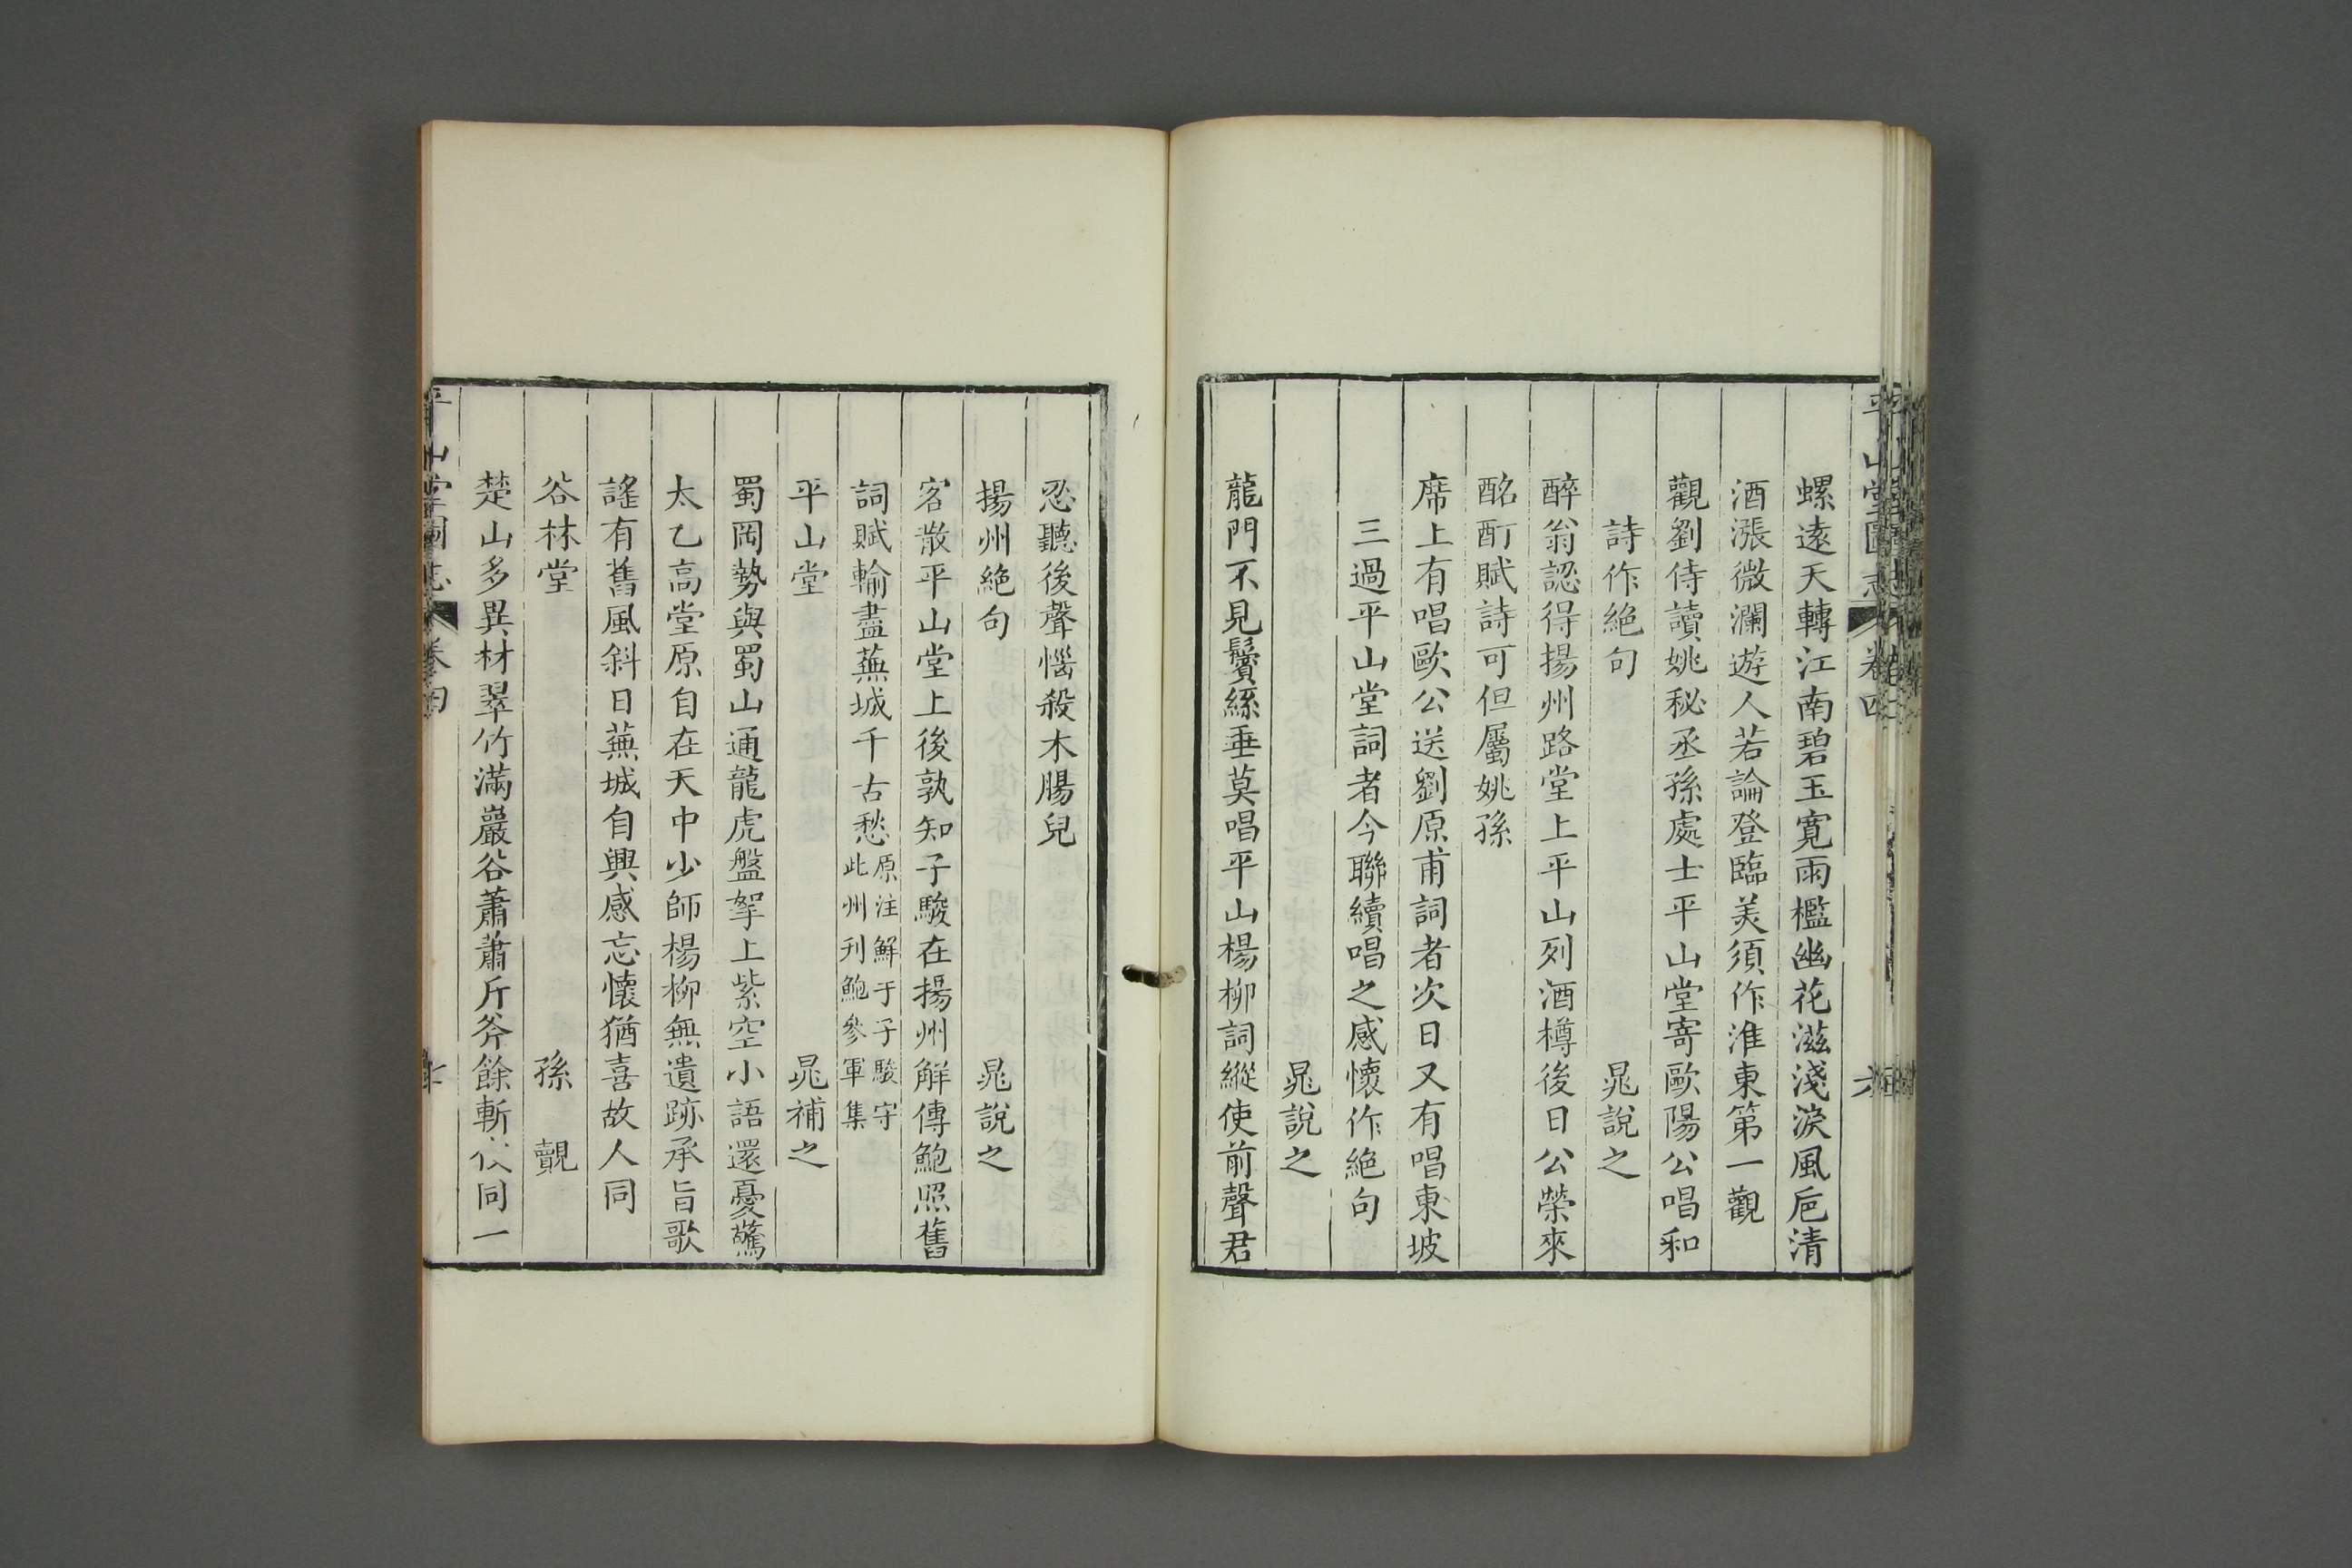 平山堂圖志 卷四
螺遠天轉江南碧玉寬雨檻幽花滋淺淚風巵清
酒漲微瀾遊人若論登臨美須作淮東第一觀
觀劉侍讀姚秘丞孫處士平山堂寄歐陽公唱和
詩作絕句 晁說之
醉翁認得揚州路堂上平山列酒樽後日公榮來
酩酊賦詩可但屬姚孫
席上有唱歐公送劉原甫詞者次日又有唱東坡
三過平山堂詞者今聯續唱之感懷作絕句
晁說之
龍門不見鬢絲垂莫唱平山楊柳詞縱使前聲君
忍聽後聲惱殺木腸兒
揚州絕句 晁說之
客散平山堂上後孰知子駿在揚州解傳鮑照舊
詞賦輸盡蕪城千古愁原注鮮于子駿守
此州刊鮑參軍集
平山堂 晁補之
蜀岡勢與蜀山通龍虎盤拏上紫空小語還憂驚
太乙高堂原自在天中少師楊柳無遺跡承旨歌
謠有舊風斜日蕪城自興感忘懷猶喜故人同
谷林堂 孫覿
楚山多異材翠竹滿巖谷蕭蕭斤斧餘斬伐同一
平山堂圖志 卷四 七